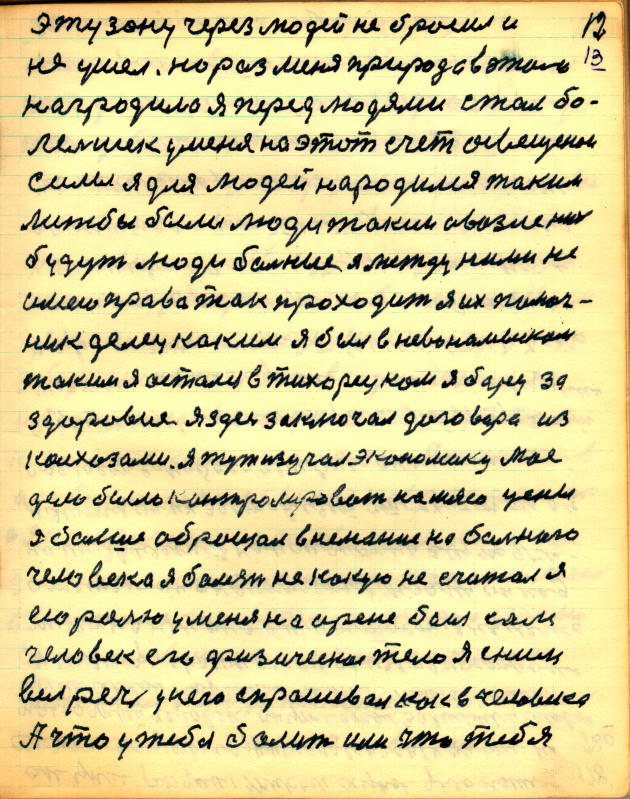 эту зону через людей не бросил и 12
не ушел. но раз меня природа в этом 13
наградила я перед людями стал бо-
лелшек у меня на этот счет освещеной
силы я для людей народился таким
лиж бы были люди таким а возле них
будут люди болние я между ними не
имею права так проходит я их помоч-
ник делец каким я был в невонамыском
таким я остался в тихорецком я борец за
здоровие. я здец заключал договора из
колхозами. я тут изучал экономику мое
дело было контролироват на мясо цены
я болше оброщал внемание на болного
человека я болязн не какую не считал я
ею ролю у меня на арене был сам
человек его физическое тело я сним
вел реч у него спрашевал как в человика
А что у тебя болит или что тебя